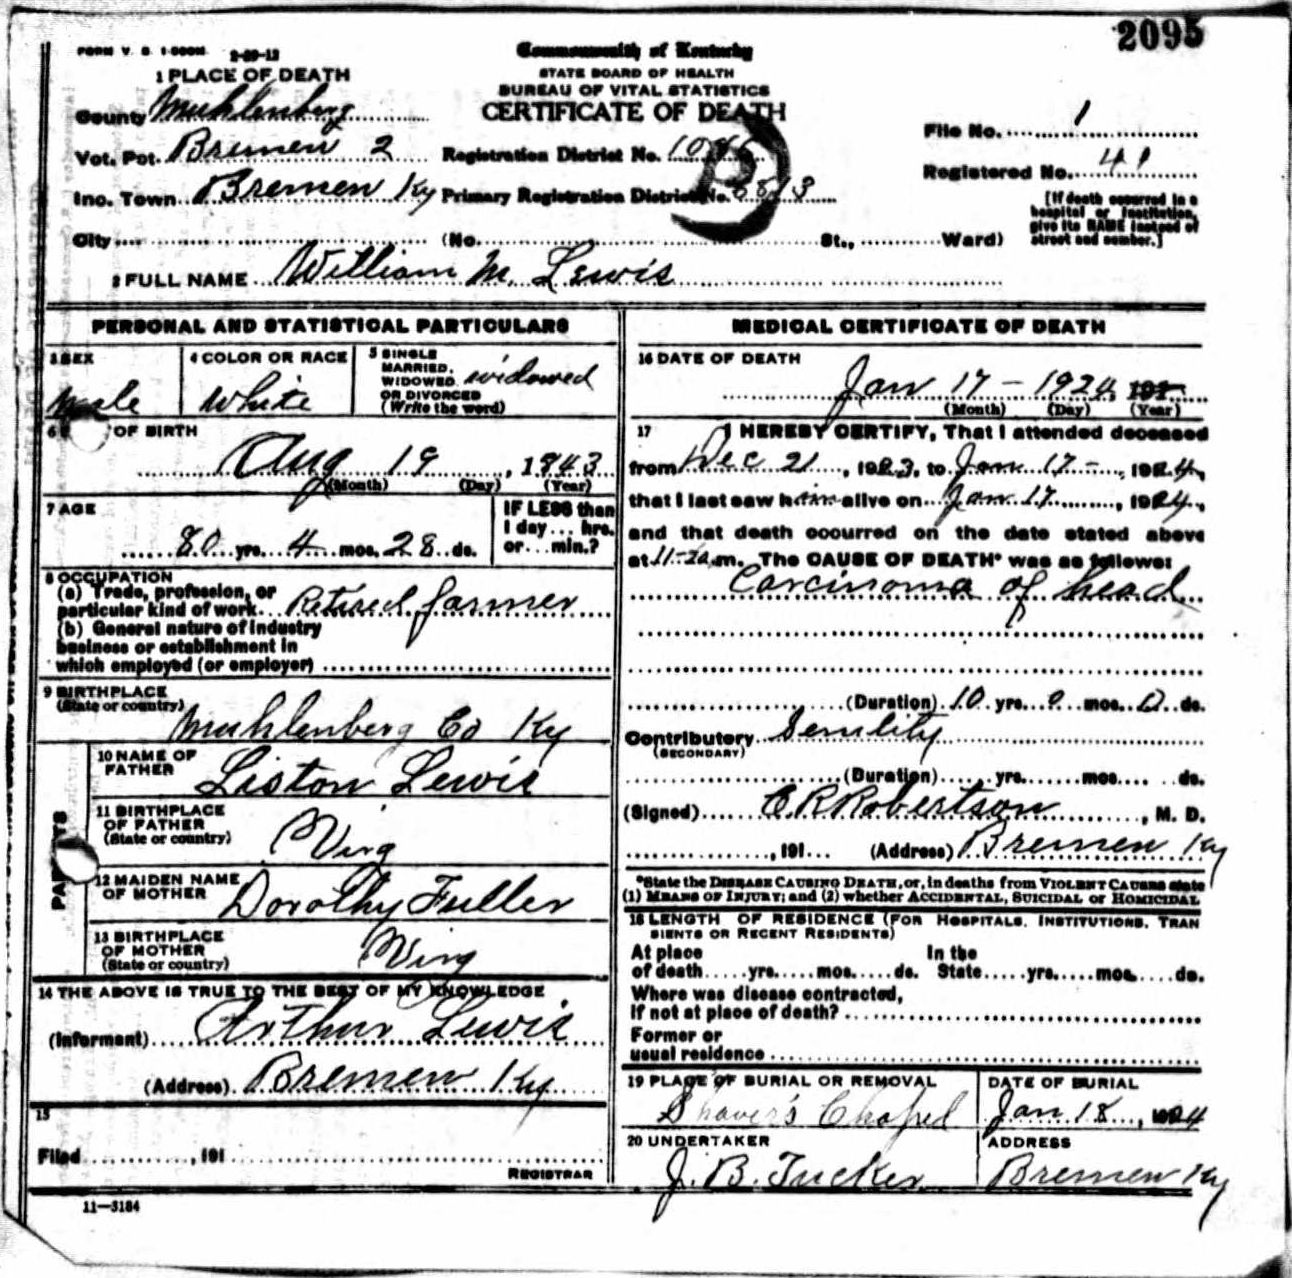 2095
FORM V. S. 1-500M 2-29-12
Commonwealth of Kentucky
STATE BOARD OF HEALTH
BUREAU OF VITAL STATISTICS
CERTIFICATE OF DEATH
1 PLACE OF DEATH
County Muhlenberg
Vot. Pct. Bremen 2
Inc. Town Bremen Ky
City
Registration District No.
Primary Registration District No.
(No. St., Ward)
File No. 1
Registered No. 41
[If death occurred in a
hospital or institution,
give its NAME instead of
street and number.]
2 FULL NAME William M. Lewis
PERSONAL AND STATISTICAL PARTICULARS
3 SEX
Male
4 COLOR OR RACE
White
5 SINGLE
MARRIED,
WIDOWED widowed
OR DIVORCED
(Write the word)
OF BIRTH
Aug 19, 1843
(Month) (Day) (Year)
7 AGE
80 yrs. 4 mos. 28 ds.
IF LESS than
1 day... hrs.
or... min.?
8 OCCUPATION
(a) Trade, profession, or
particular kind of work. Retired farmer
(b) General nature of industry
business or establishment in
which employed (or employer)
9 BIRTHPLACE
(State or country)
Muhlenberg Co Ky
PARENTS
10 NAME OF
FATHER
Liston Lewis
11 BIRTHPLACE
OF FATHER
(State or country)
Virg
12 MAIDEN NAME
OF MOTHER
Dorothy Fuller
13 BIRTHPLACE
OF MOTHER
(State or country)
Virg
14 THE ABOVE IS TRUE TO THE BEST OF MY KNOWLEDGE
(Informant) Arthur Lewis
(Address) Bremen Ky
15
Filed , 191
REGISTRAR
11—3184
MEDICAL CERTIFICATE OF DEATH
16 DATE OF DEATH
Jan 17 - 1924, 191
(Month) (Day) (Year)
17 I HEREBY CERTIFY, That I attended deceased
from Dec 21, 1923, to Jan 17 -, 1924,
that I last saw him alive on Jan 17, 1924,
and that death occurred on the date stated above
at 11-20 m. The CAUSE OF DEATH* was as follows:
Carcinoma of head
(Duration) 10 yrs. 0 mos. 0 ds.
Contributory Senility
(SECONDARY)
(Duration) yrs. mos. ds.
(Signed) C. R. Robertson, M. D.
, 191 (Address) Bremen Ky
*State the DISEASE CAUSING DEATH, or, in deaths from VIOLENT CAUSES state
(1) MEANS OF INJURY; and (2) whether ACCIDENTAL, SUICIDAL or HOMICIDAL
18 LENGTH OF RESIDENCE (FOR HOSPITALS, INSTITUTIONS, TRAN
SIENTS OR RECENT RESIDENTS)
At place In the
of death yrs. mos. ds. State yrs. mos. ds.
Where was disease contracted,
If not at place of death?
Former or
usual residence
19 PLACE OF BURIAL OR REMOVAL
Shaver's Chapel
DATE OF BURIAL
Jan 18, 1924
20 UNDERTAKER
J. B. Tucker
ADDRESS
Bremen Ky